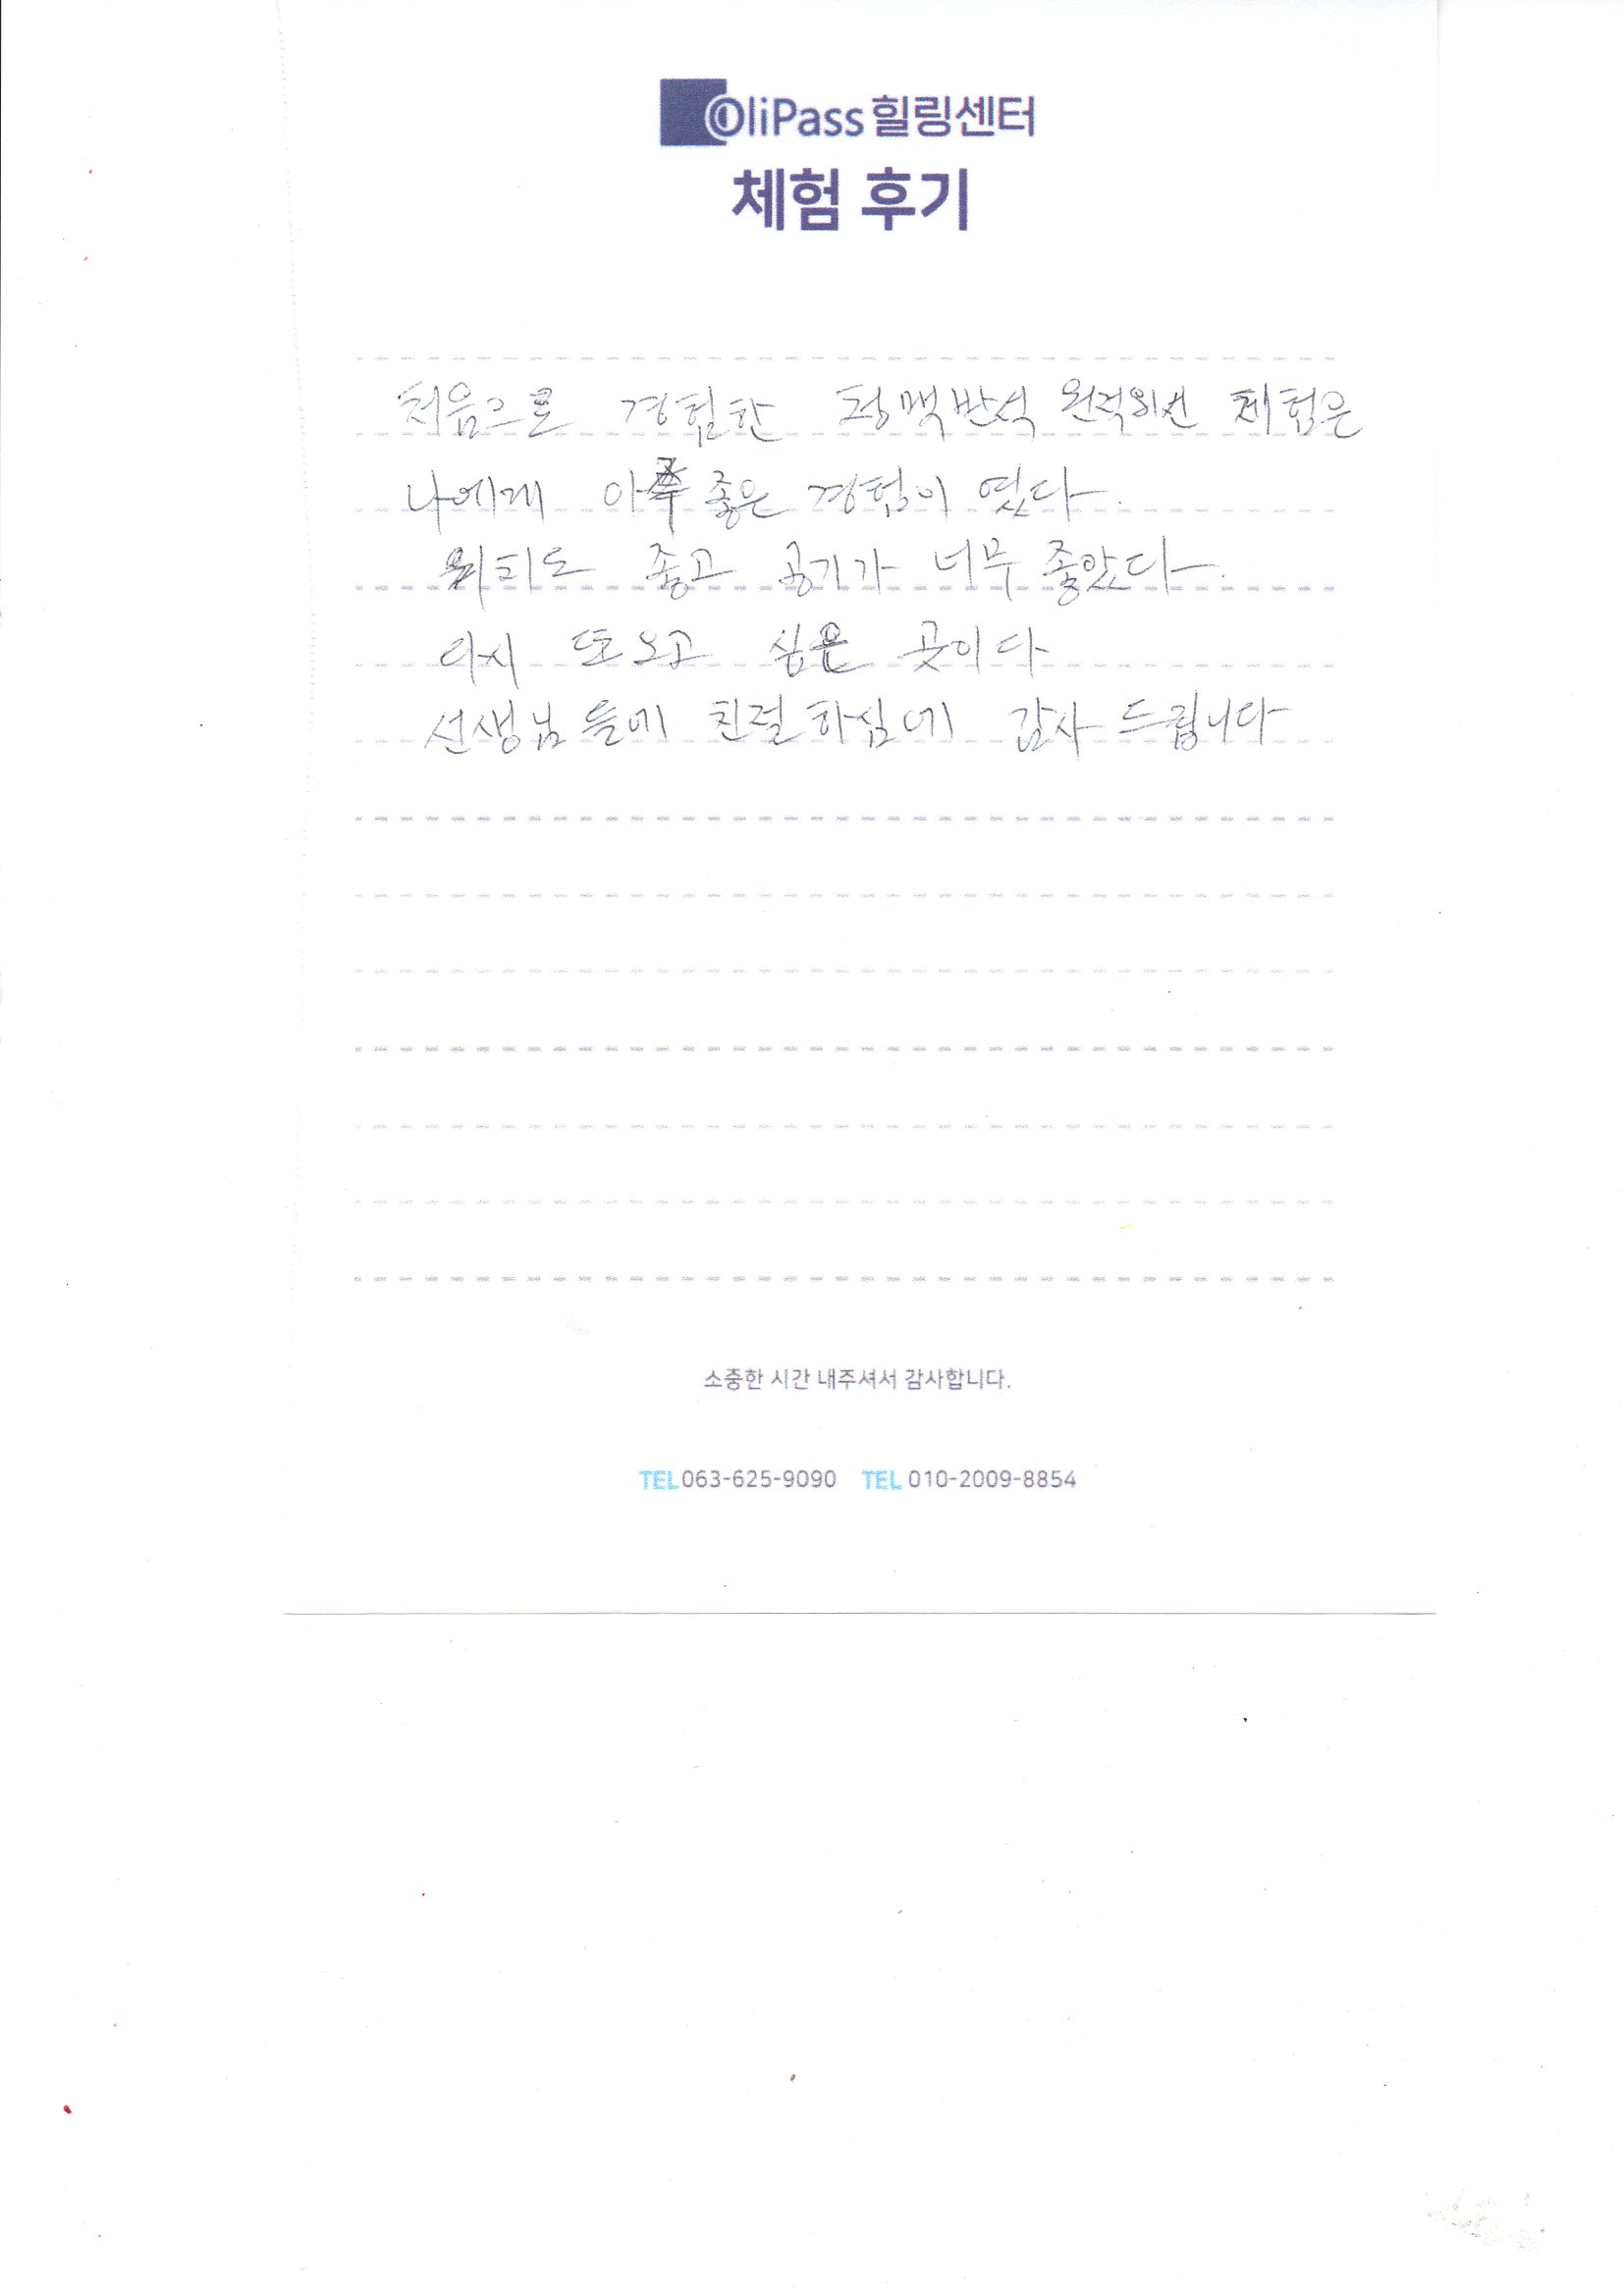 OliPass 힐링센터
체험 후기
처음으로 경험한 정맥반석 원적외선 체험은
나에게 아주 좋은 경험이 였다.
위치도 좋고 공기가 너무 좋았다.
다시 또오고 싶은 곳이다
선생님 들에 친절 하심에 감사 드립니다
소중한 시간 내주셔서 감사합니다.
TEL 063-625-9090 TEL 010-2009-8854